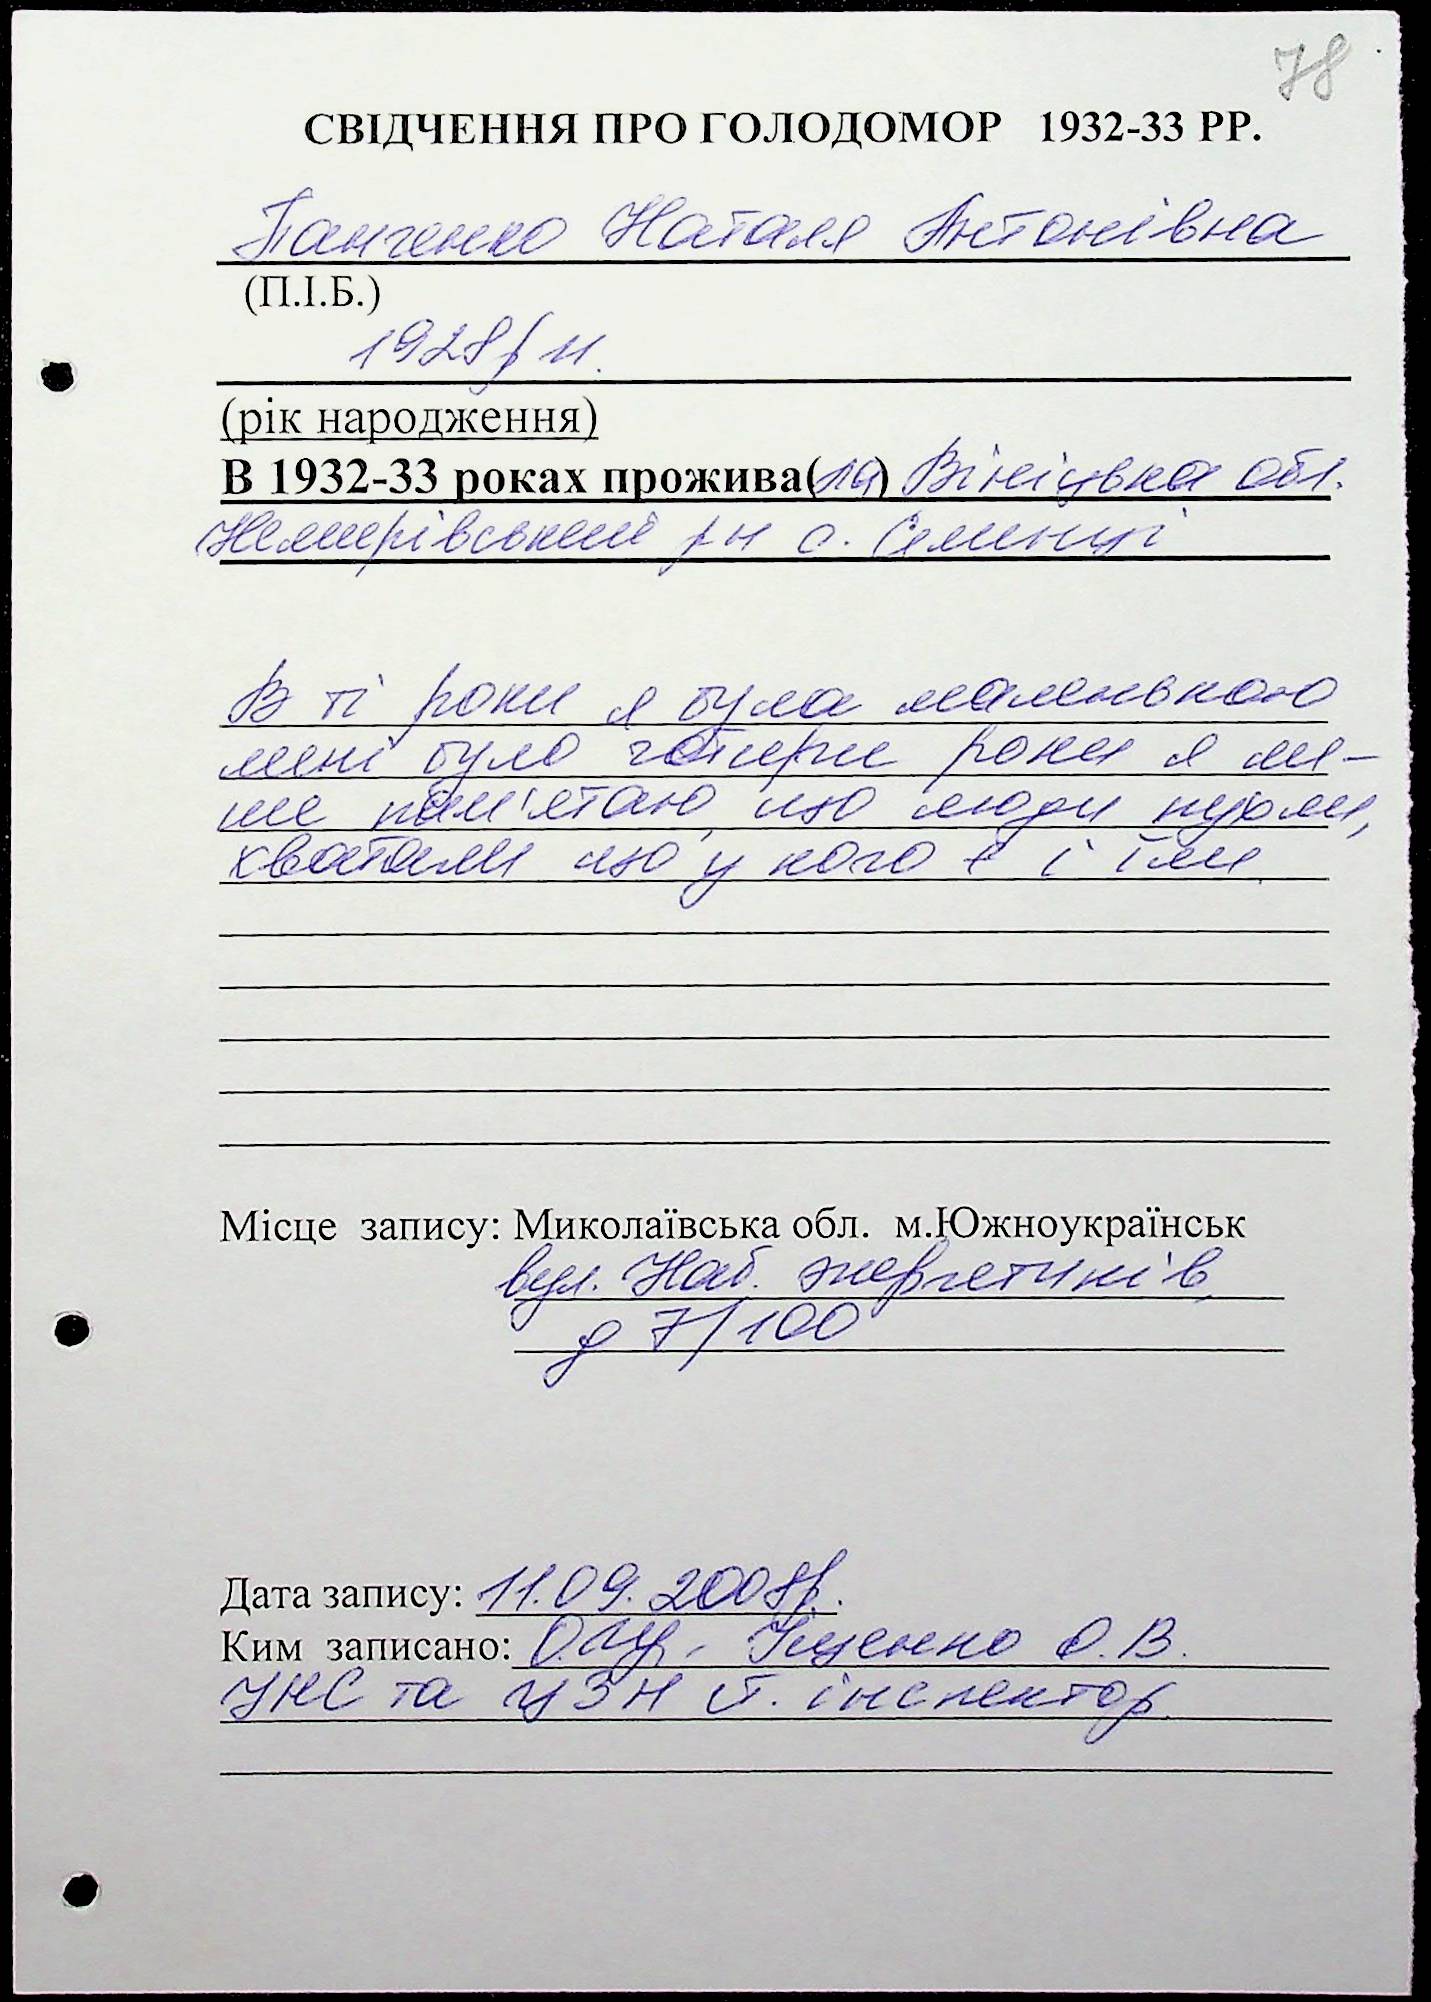 78
СВІДЧЕННЯ ПРО ГОЛОДОМОР 1932-33 РР.
Панченко Наталя Антонівна
(П.І.Б.)
1928 р н.
(рік народження)
В 1932-33 роках прожива(ла) Вініцька обл.
Немирівський р н с. Семенці
В ті роки я була маленькою
мені було чотири роки я ли-
ше пам'ятаю, що люди пухли,
хватали що у кого є і їли.
Місце запису: Миколаївська обл. м.Южноукраїнськ
вул. Наб. энергетиків,
д 7/100
Дата запису: 11.09.2008р.
Ким записано: Іщенко О.В.
УНС та ЦЗН ст. інспектор.